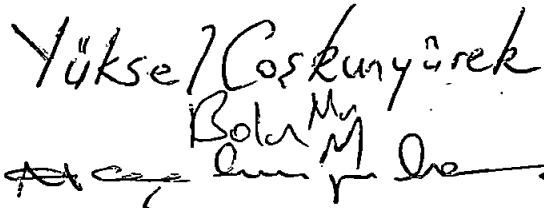 Yüksel Coşkunyürek
Bolu Mv